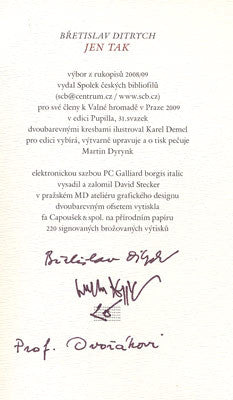 BŘETISLAV DITRYCH
JEN TAK
výbor z rukopisů 2008/09
vydal Spolek českých bibliofilů
(scb@centrum.cz / www.scb.cz)
pro své členy k Valné hromadě v Praze 2009
v edici Pupilla, 31.svazek
dvoubarevnými kresbami ilustroval Karel Demel
pro edici vybírá, výtvarně upravuje a o tisk pečuje
Martin Dyrynk
elektronickou sazbou PC Galliard borgis italic
vysadil a zalomil David Stecker
v pražském MD ateliéru grafického designu
dvoubarevným ofsetem vytiskla
fa Capoušek & spol. na přírodním papíru
220 signovaných brožovaných výtisků
Břetislav Ditrych
Prof. Dvořákovi